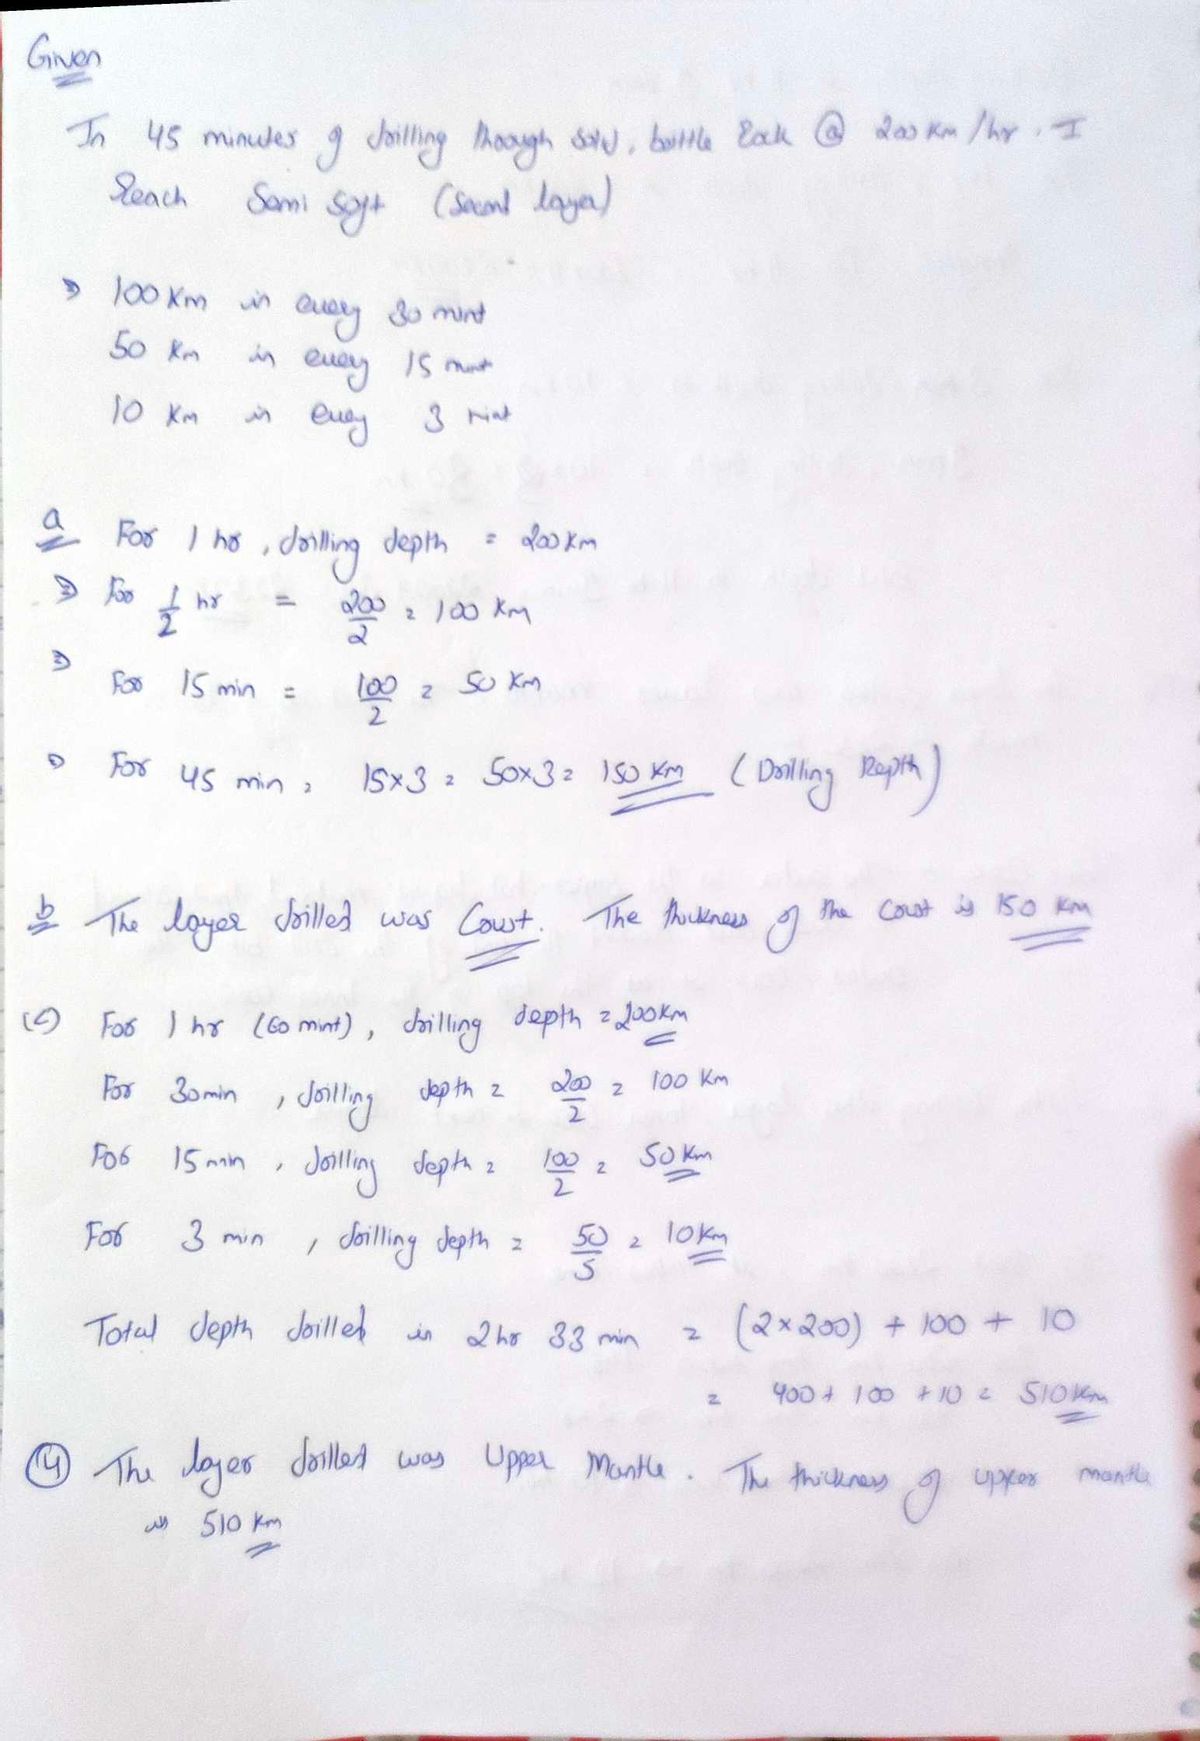 Given
In 45 minutes of drilling through solid, brittle Rock @ 200 km/hr. I
Reach Semi soft (Second layer)
⇒ 100 Km in every 30 mint
50 Km in every 15 mint
10 Km in every 3 mint
a For 1 hr, drilling depth = 200 Km
⇒ For 1/2 hr = 200/2 = 100 Km
⇒
For 15 min = 100/2 = 50 Km
⇒ For 45 min = 15×3 = 50×3 = 150 KM (Drilling Depth)
b The layer drilled was Crust. The thickness of the Crust is 150 Km
(c) For 1 hr (60 mint), drilling depth = 200Km
For 30min, drilling depth = 200/2 = 100 Km
For 15 min, drilling depth = 100/2 = 50 Km
For 3 min, drilling depth = 50/5 = 10 Km
Total depth drilled in 2 hr 33 min = (2×200) + 100 + 10
= 400 + 100 + 10 = 510 Km
(4) The layer drilled was Upper Mantle. The thickness of upper mantle
is 510 Km